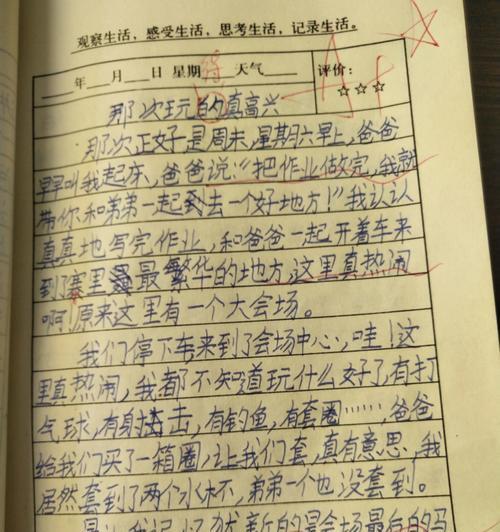 观察生活，感受生活，思考生活，记录生活。
年 月 日 星期 天气 评价：
☆☆☆
那次玩的真高兴
那次正好是周末，星期六早上，爸爸
早早叫我起床，爸爸说：“把作业做完，我就
带你和弟弟一起到去一个好地方！”我认认
真真地写完作业，和爸爸一起开着车来
到了寨里最繁华的地方，这里真热闹
啊！原来这里有一个大会场。
我们停下车来到了会场中心，哇！这
里真热闹，我都不知道玩什么好了，有打
气球，有射击，有钓鱼，有套圈……，爸爸
给我们买了一箱圈，让我们套，真有意思，我
居然套到了两个水杯，弟弟一个也没套到。